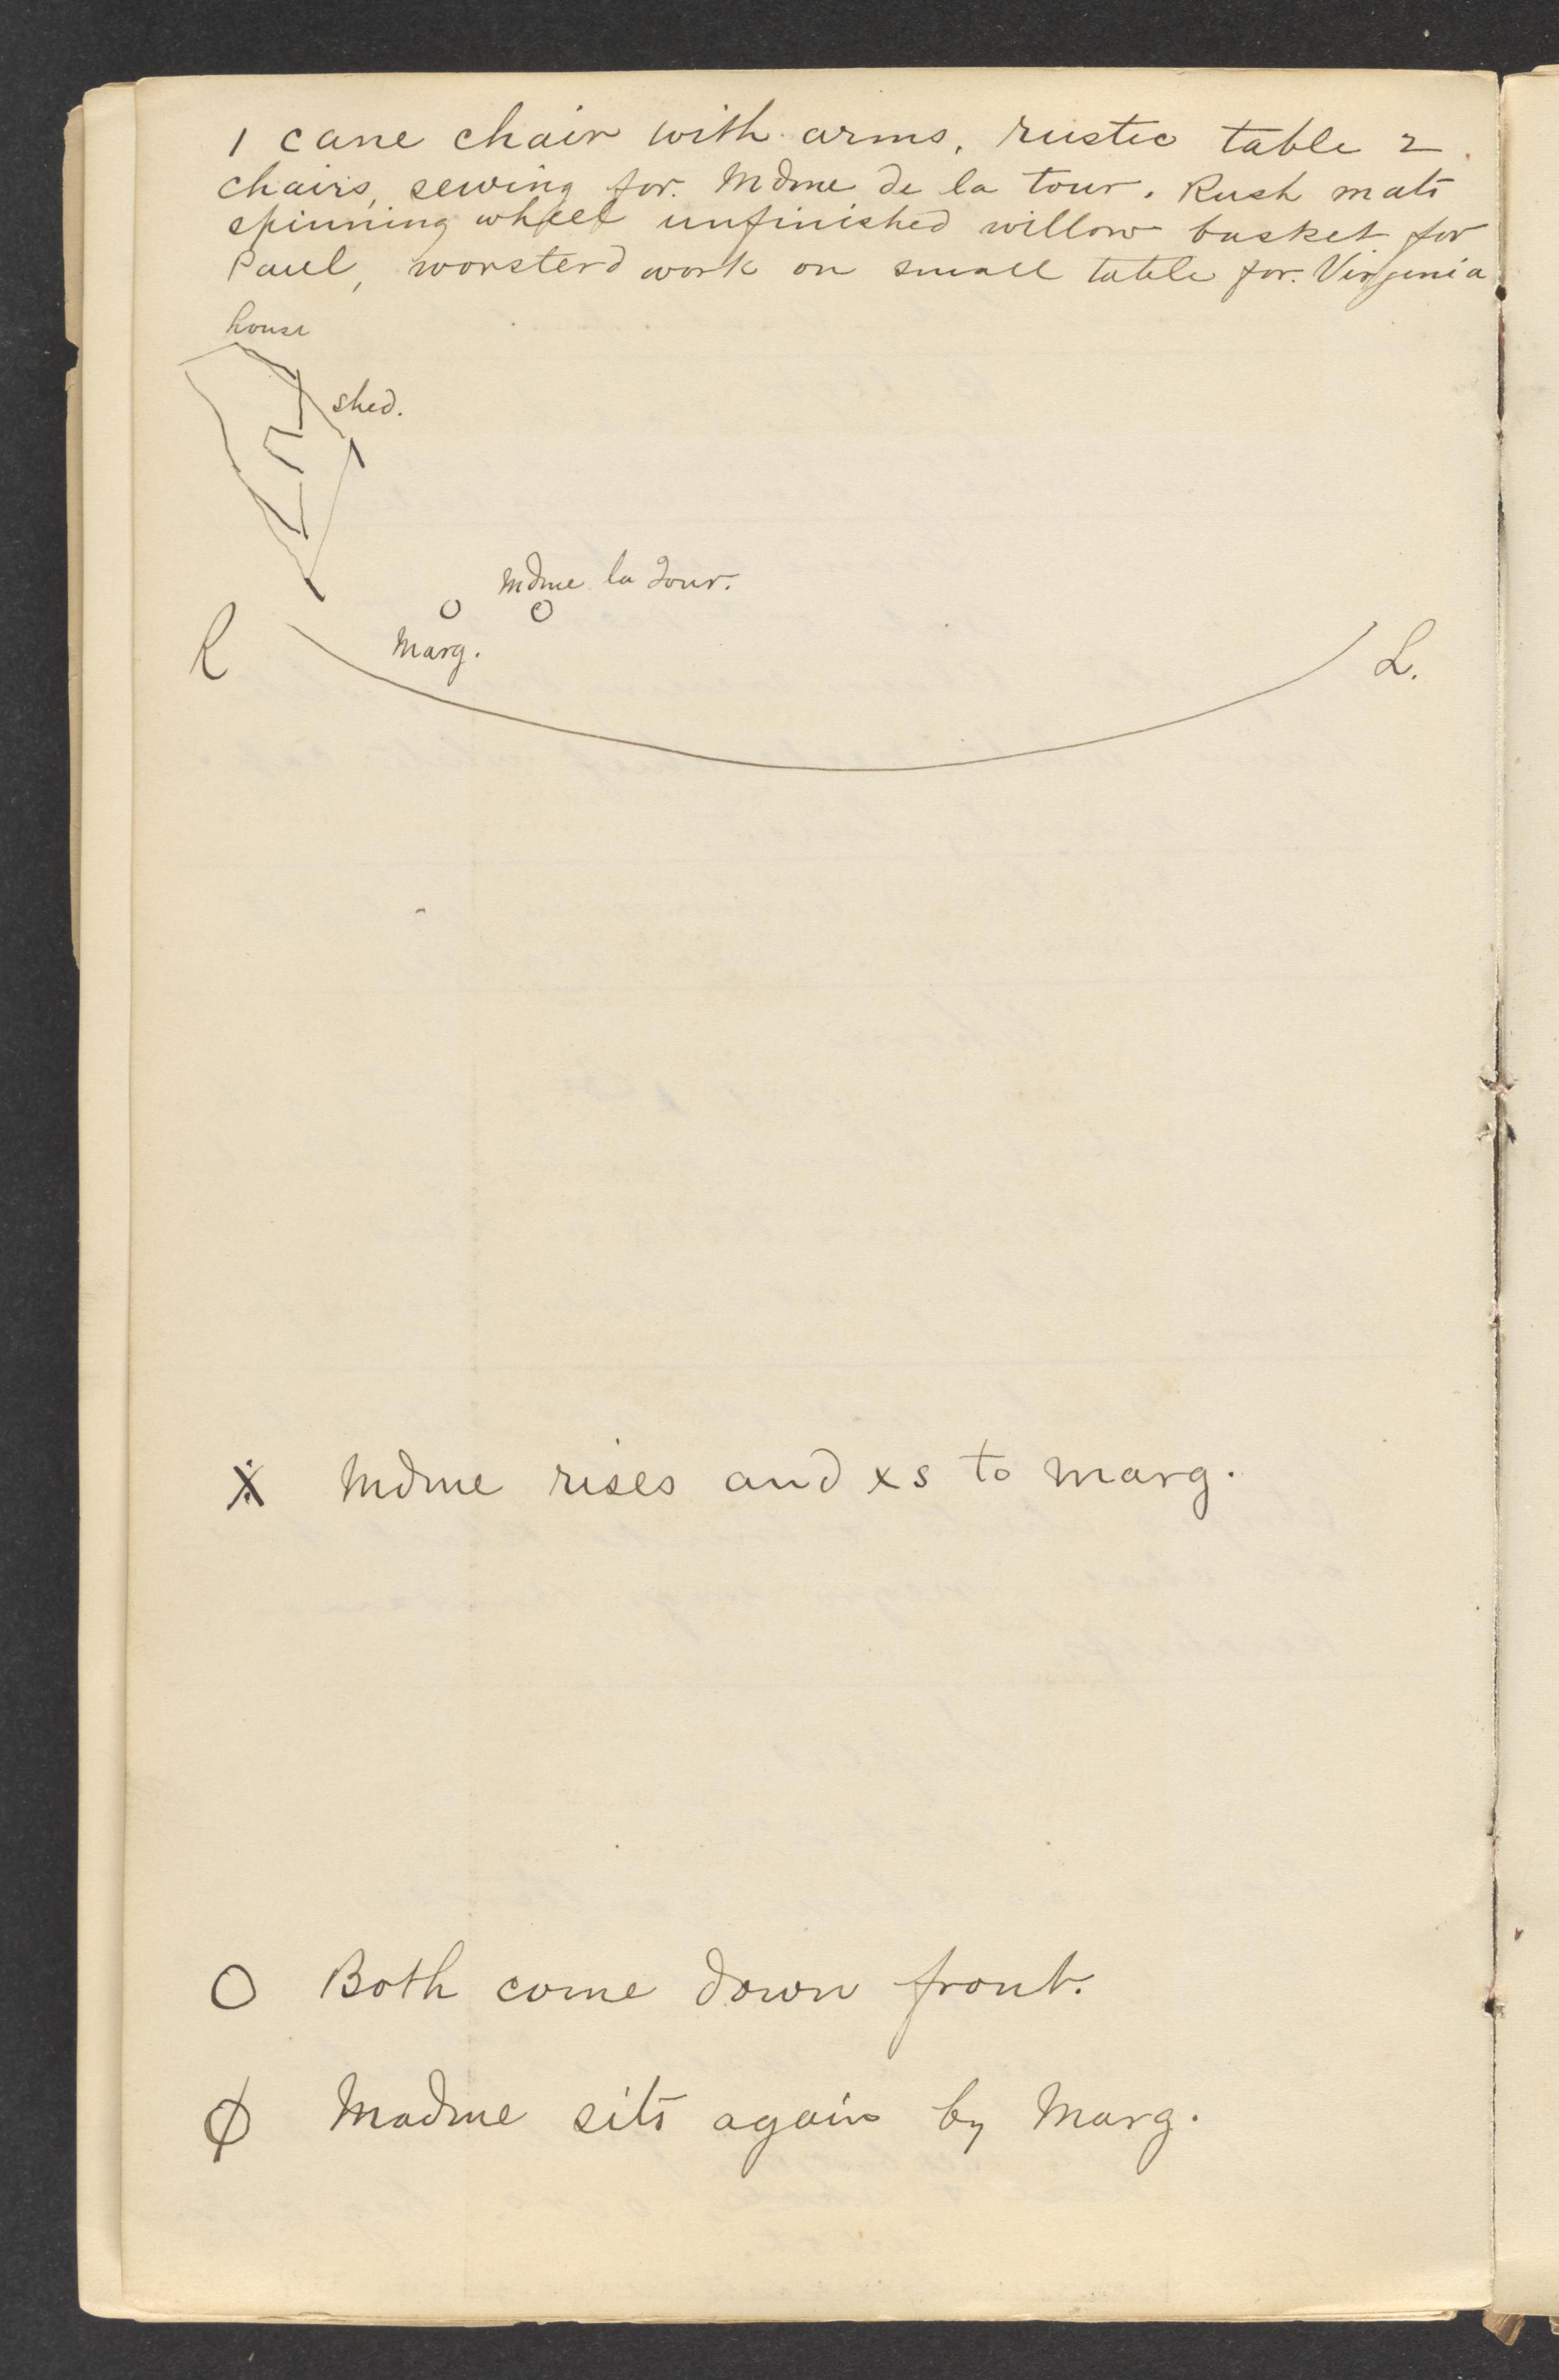 1 cane chair with arms, rustic table 2
chairs, sewing for. Mdme de la tour. Rush mats
spinning wheel unfinished willow basket for
Paul, worsterd work on small table for. Virginia
house
shed.
Mdme la Tour.
Marg.
R
L.
X Mdme rises and xs to Marg.
O Both come down front.
Ø Madme sits again by Marg.